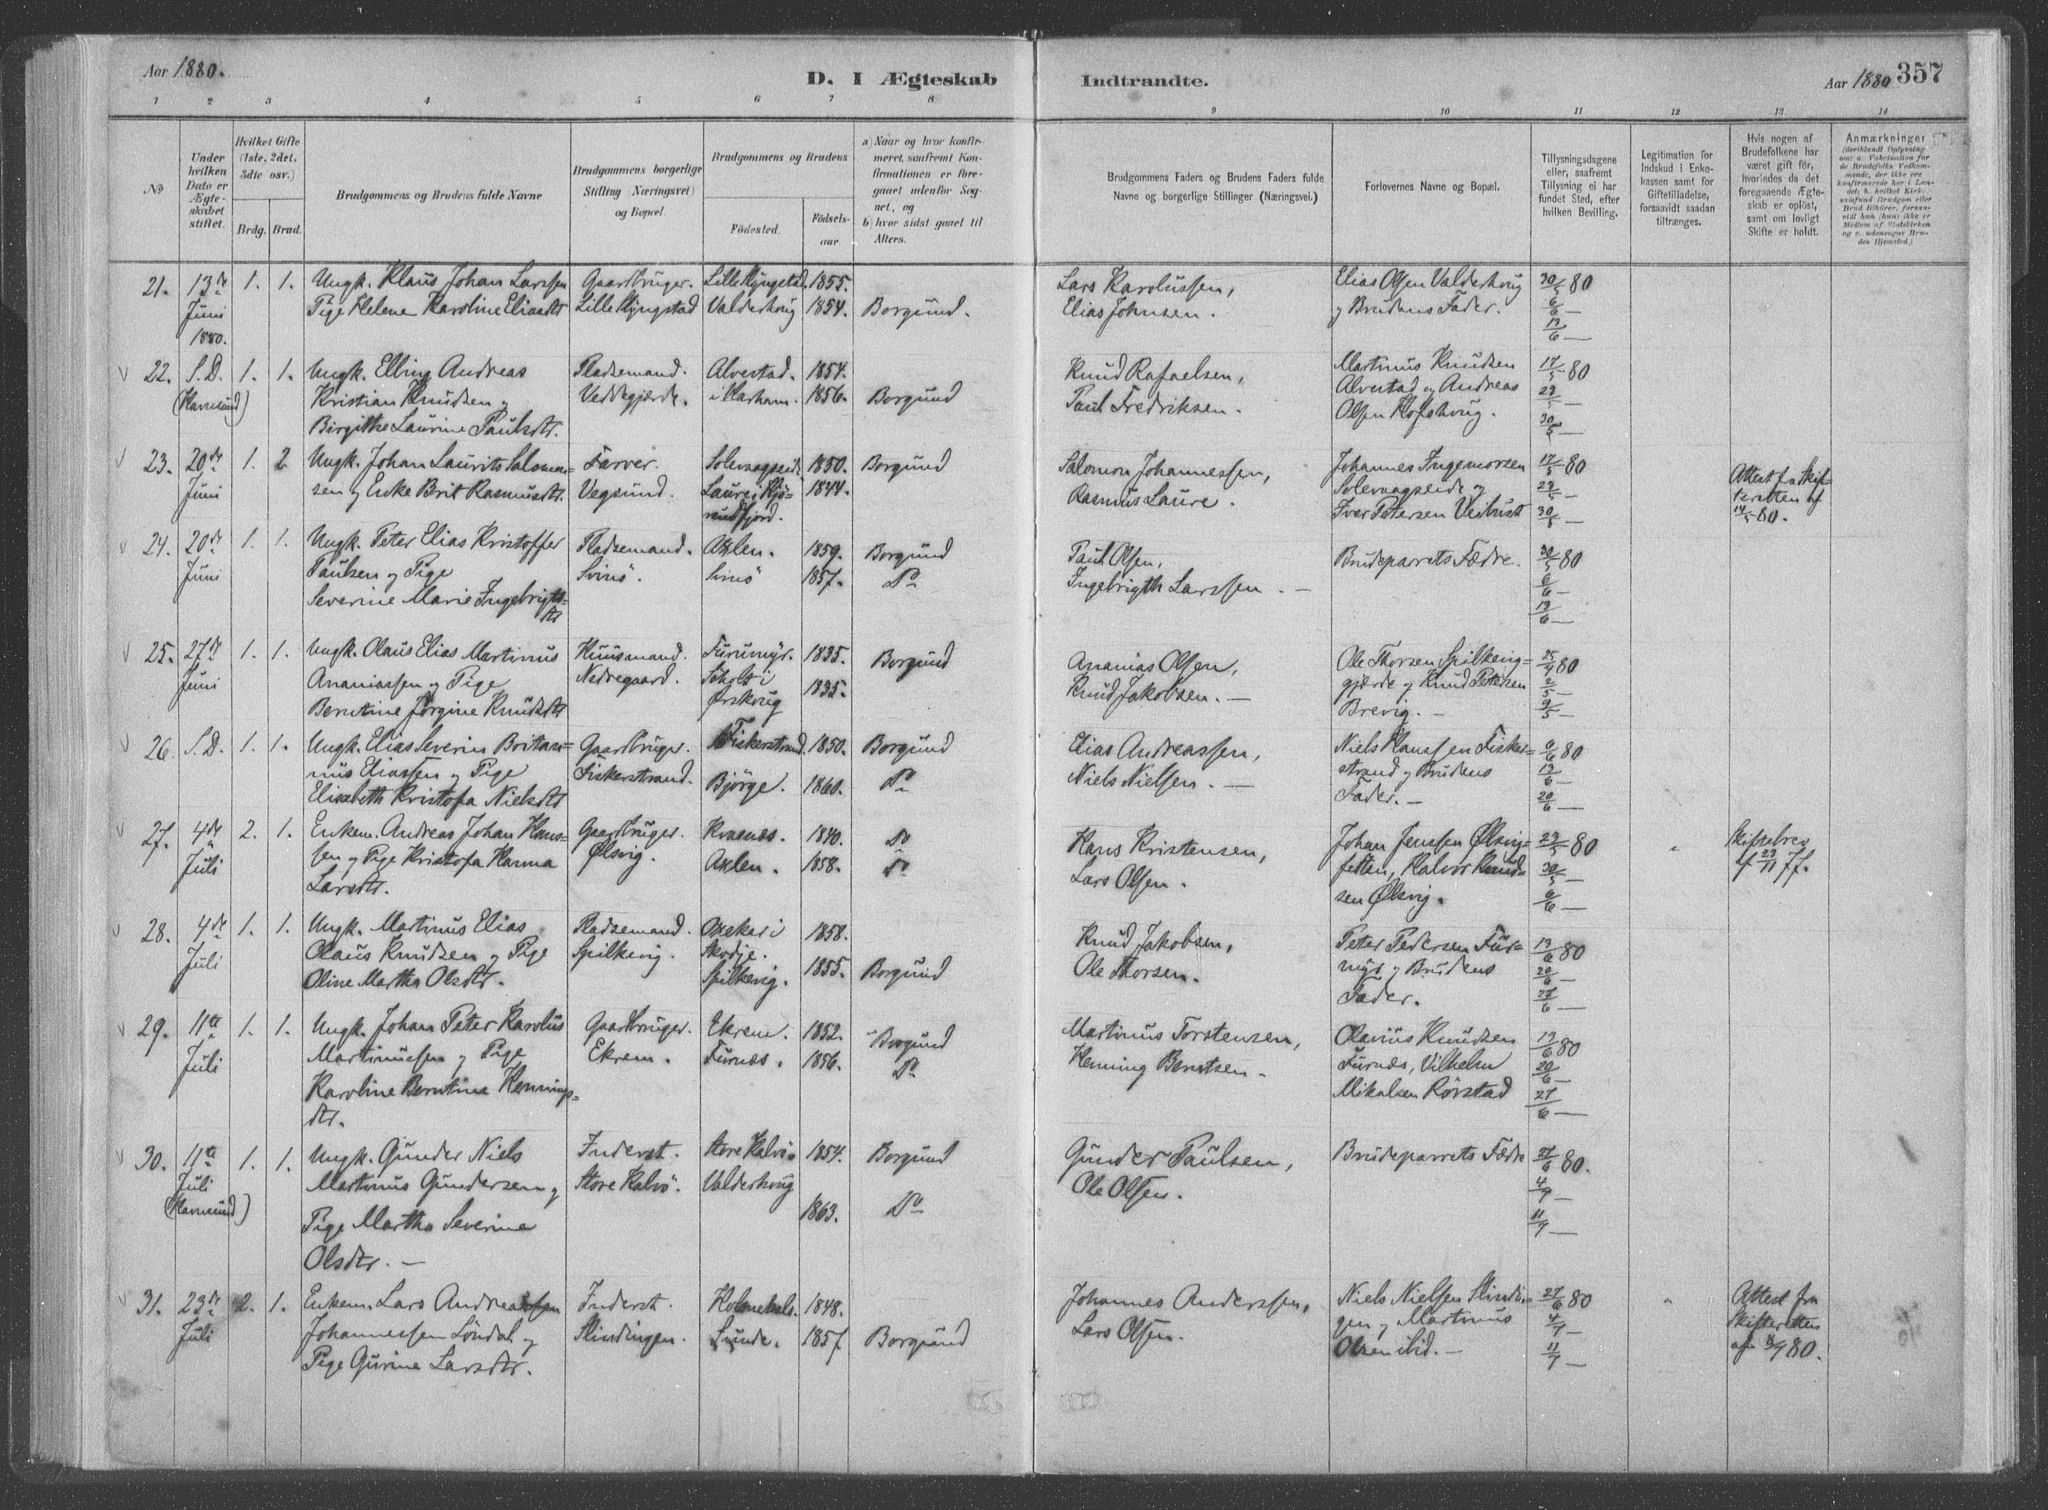 Aar 1880.
D. I Ægteskab Indtrandte.
Aar 1880
357
1 2 3 4 5 6 7 8 9 10 11 12 13 14
No
Under hvilken Dato er Ægteskabet stiftet.
Hvilket Gifte (1ste, 2det, 3die osv.)
Brdg. Brud.
Brudgommens og Brudens fulde Navne
Brudgommens borgerlige Stilling (Næringsvei) og Bopæl.
Brudgommens og Brudens
Födested. Födselsaar.
a) Naar og hvor konfirmeret, saafremt Konfirmationen er foregaaet udenfor Sognet, og
b) hvor sidst gaaet til Alters.
Brudgommens Faders og Brudens Faders fulde Navne og borgerlige Stillinger (Næringsvei.)
Forlovernes Navne og Bopæl.
Tillysningsdagene eller, saafremt Tillysning ei har fundet Sted, efter hvilken Bevilling.
Legitimation for Indskud i Enkekassen samt for Giftetilladelse, forsaavidt saadan tiltrænges.
Hvis nogen af Brudefolkene har været gift för, hvorledes da det foregaaende Ægteskab er oplöst, samt om lovligt Skifte er holdt.
Anmærkninger
21. 13de 1. 1. Ungk. Klaus Johan Larssen Gaardbruger. Lille Kjngstad. 1855. Lars Karolussen, Elias Olsen Valderhoug 30/5 80
Juni Pige Helene Karoline Eliasdt Lille Kjngstad Valderhoug 1854. Borgund. Elias Johnsen. og Brudens Fader. 6/6 —
1880. 13/6
22. S.D. 1. 1. Ungk. Elling Andreas Pladsemand. Alvestad. 1854. Knud Rafaelsen, Martinus Knudsen 17/5 80
(Havnsund) Kristian Knudsen og Veddegjærde. i Harham. 1856. Borgund Paul Fredriksen. Alvestad og Andreas 23/5 —
Birgithe Laurine Paulsdt. Olsen Hofshoug. 30/5 —
23. 20de 1. 2. Ungk. Johan Laurits Salomon- Farver. Solevaagseide 1850. Borgund Salomon Johannessen, Johannes Ingemorsen 17/5 80 Attest fra Skif-
Juni sen og Enke Brit Rasmusdt. Vegsund. Laure i Hjö- 1844. Rasmus Laure. Solevaagseide og 23/5 — teretten af
rundfjord. Iver Petersen Veibust 30/5 — 14/5 80.
24. 20de 1. 1. Ungk. Peter Elias Kristoffer Pladsemand. Axlen. 1859. Borgund Paul Olsen, Brudeparrets Fædre. 30/5 80
Juni Paulsen og Pige Svinö. Svinö 1857. Do Ingebrigth Larssen. — 6/6 —
Severine Marie Ingebrigts- 13/6
dt
25. 27de 1. 1. Ungk. Olaus Elias Martinus Huusmand. Furumyr. 1835. Borgund Ananias Olsen, Ole Thorsen Spilkevig- 25/4 80
Juni Ananiassen og Pige Nedregaard. Scholt i 1835. Knud Jakobsen. — gjærde og Knud Petersen 2/5 —
Berntine Jørgine Knudsdt Ørskoug Brevig. — 9/5 —
26. S.D. 1. 1. Ungk. Elias Severin Britan- Gaardbruger. Fiskerstrand. 1850. Borgund Elias Andreassen, Niels Hanssen Fisker- 6/6 80
nus Eliassen og Pige Fiskerstrand. Bjørge. 1860. Do Niels Nielsen. — strand og Brudens 13/6 —
Elisabeth Kristofa Nielsdt Fader. — 20/6 —
27. 4de 2. 1. Enkem. Andreas Johan Hans- Gaardbruger. Kvasnæs. 1840. Do Hans Kristensen, Johan Jenssen Ølsvig- 23/5 80 " Skiftebrev
Juli sen og Pige Kristofa Hanna Ølsvig. Axlen. 1858. Do Lars Olsen. fetten, Halvor Knud- 30/5 — af 23/11 77.
Larsdt. sen Ølsvig. 6/6 —
28. 4de 1. 1. Ungk. Martinus Elias Pladsemand. Oxekar i 1858. Knud Jakobsen, Peter Pedersen Fur- 13/6 80
Juli Olaus Knudsen og Pige Spilkevig. Skodje. Ole Thorsen. myr og Brudens 20/6 —
Oline Martha Olsdt. Spilkevig. 1855. Borgund Fader. 27/6 —
29. 11te 1. 1. Ungk. Johan Peter Karolus Gaardbruger. Ekrem. 1852. Borgund Martinus Torstensen, Olavius Knudsen 13/6 80
Juli Martinussen og Pige Ekrem. Furnæs. 1856. Do Henning Berntsen. Furnæs, Vilhelm 20/6 —
Karoline Berntine Hennings- Mikalsen Rörstad 27/6 —
dt.
30. 11te 1. 1. Ungk. Gunder Niels Inderst. Store Kalvö. 1854. Borgund Gunder Paulsen, Brudeparrets Fædre 27/6 80.
Juli Martinus Gundersen og Store Kalvö. Valderhoug Ole Olsen. 4/7 —
(Havnsund) Pige Martha Severine 1863. Do 11/7 —
Olsdtr. —
31. 23de 2. 1. Enkem. Lars Andreassen Inderst. Kolnehals. 1848. Johannes Anderssen, Niels Nielsen Slindin- 27/6 80 " Attest fra
Juli Johannessen Löndal og Slindingen. Sunde. 1857 Borgund Lars Olsen. gen og Martinus 4/7 — Skifteretten
Pige Gurine Larsdtr. Olsen ibid. — 11/7 — af 4/7 80.